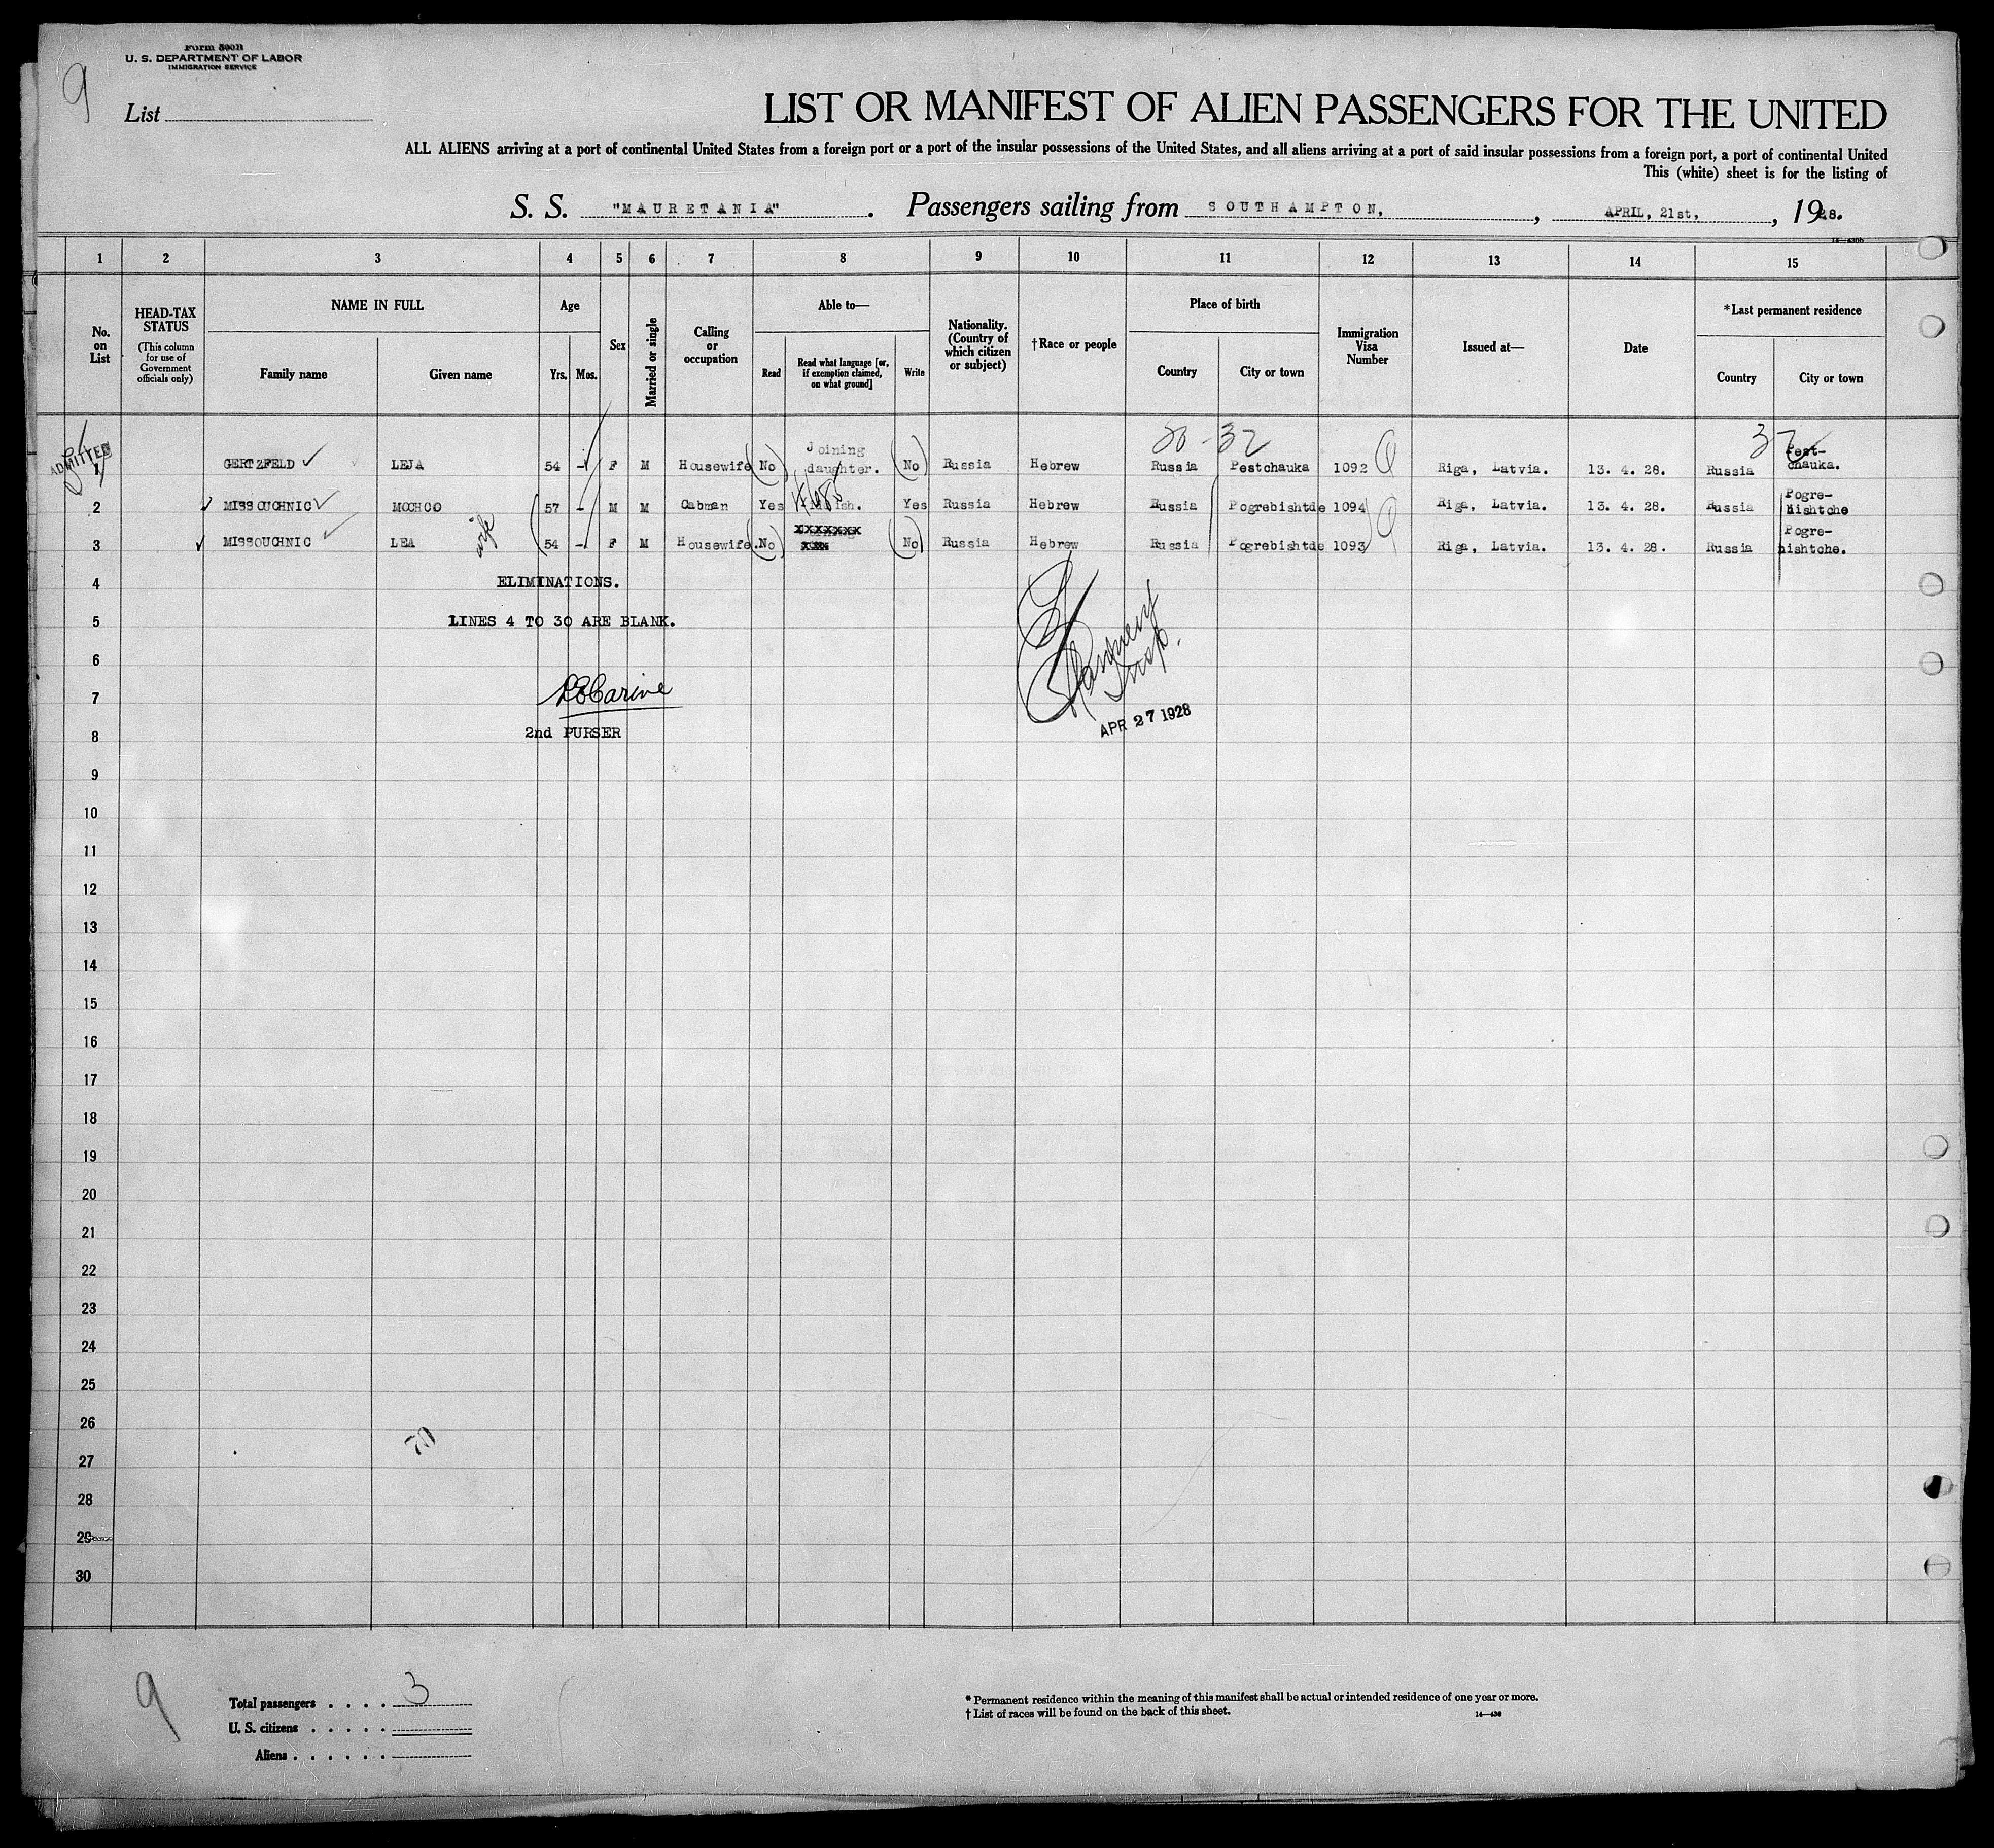 Form 500B
U. S. DEPARTMENT OF LABOR
IMMIGRATION SERVICE
9
List
LIST OR MANIFEST OF ALIEN PASSENGERS FOR THE UNITED
ALL ALIENS arriving at a port of continental United States from a foreign port or a port of the insular possessions of the United States, and all aliens arriving at a port of said insular possessions from a foreign port, a port of continental United
This (white) sheet is for the listing of
S. S. "MAURETANIA". Passengers sailing from SOUTHAMPTON, , APRIL, 21st, , 1928.
1 2 3 4 5 6 7 8 9 10 11 12 13 14 15
No. on List
HEAD-TAX STATUS
(This column for use of Government officials only)
NAME IN FULL
Family name
Given name
Age
Yrs.
Mos.
Sex
Married or single
Calling or occupation
Able to—
Read
Read what language [or, if exemption claimed, on what ground]
Write
Nationality. (Country of which citizen or subject)
†Race or people
Place of birth
Country
City or town
Immigration Visa Number
Issued at—
Date
*Last permanent residence
Country
City or town
20-32
37
ADMITTED
1 GERTZFELD LEJA 54 - F M Housewife No Joining daughter. No Russia Hebrew Russia Pestchauka 1092 Riga, Latvia. 13. 4. 28. Russia Pest-chauka.
2 MISSOUCHNIC MOCHCO 57 - M M Cabman Yes Yes Russia Hebrew Russia Pogrebishtde 1094 Riga, Latvia. 13. 4. 28. Russia Pogre-bishtche
3 MISSOUCHNIC LEA wife 54 - F M Housewife. No No Russia Hebrew Russia Pogrebishtde 1093 Riga, Latvia. 13. 4. 28. Russia Pogre-bishtche.
4 ELIMINATIONS.
5 LINES 4 TO 30 ARE BLANK.
6
7
Insp.
APR 27 1928
8 2nd PURSER
9
10
11
12
13
14
15
16
17
18
19
20
21
22
23
24
25
26
70
27
28
29
30
9
Total passengers . . . . 3
U. S. citizens . . . . .
Aliens . . . . . .
* Permanent residence within the meaning of this manifest shall be actual or intended residence of one year or more.
† List of races will be found on the back of this sheet.
14—436